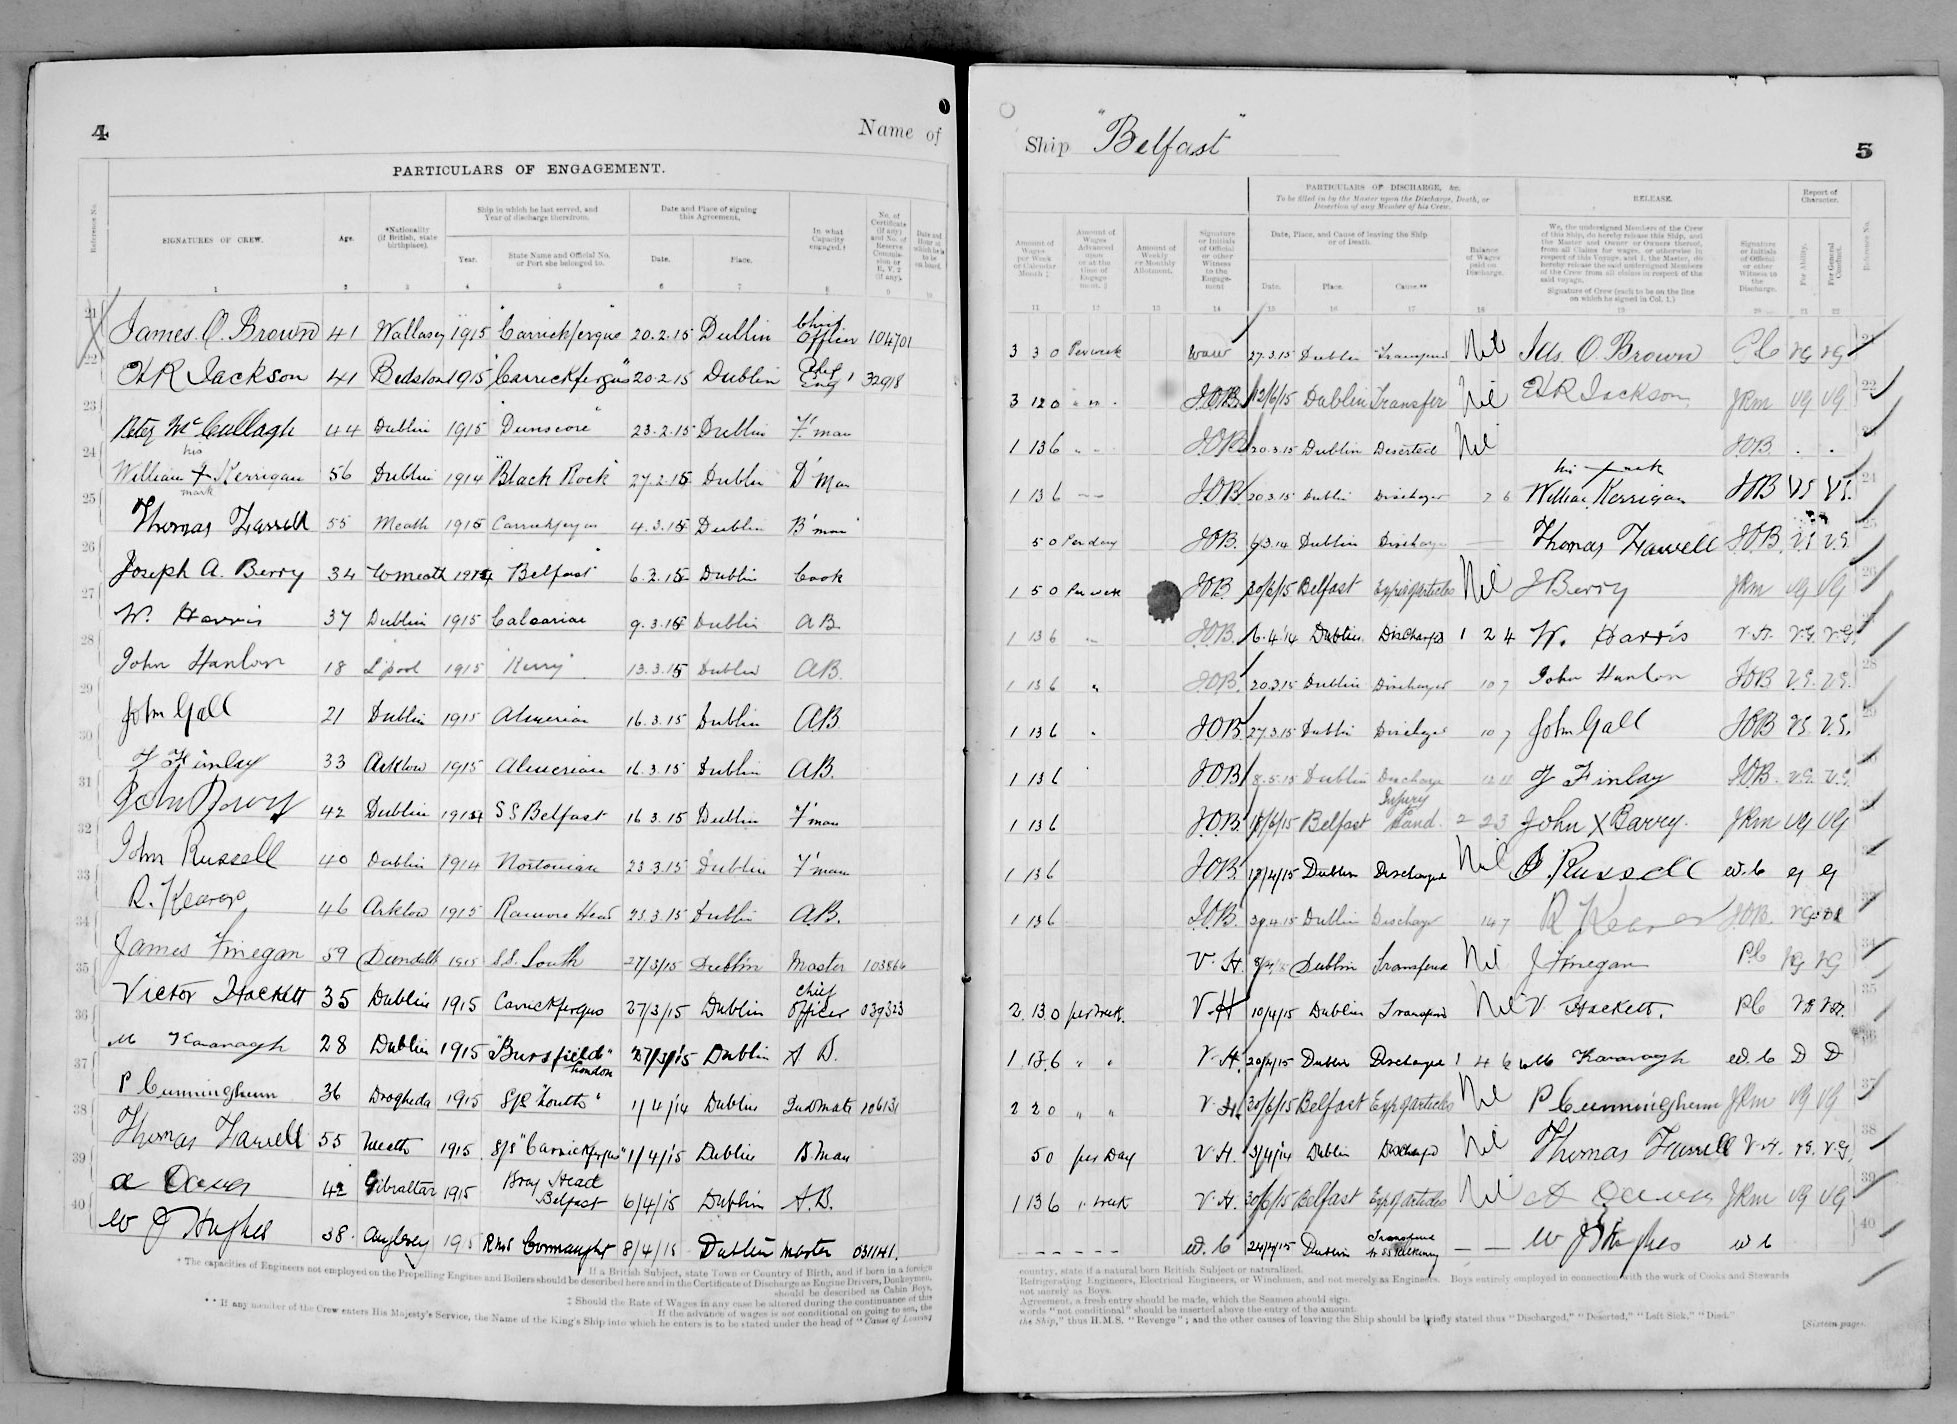 4
Name of
PARTICULARS OF ENGAGEMENT.
Reference No.
SIGNATURES OF CREW.
Age.
*Nationality (if British, state birthplace).
Ship in which he last served, and Year of discharge therefrom.
Year.
State Name and Official No. or Port she belonged to.
Date and Place of signing this Agreement.
Date.
Place.
In what Capacity engaged.†
No. of Certificate (if any) and No. of Reserve Commission or R.V. 2 (if any).
Date and Hour at which he is to be on board.
1 2 3 4 5 6 7 8 9 10
21 James O. Brown 41 Wallasey 1915 "Carrickfergus" 20.2.15 Dublin Chief Officer 104701
22 H R Jackson 41 Bedston 1915 "Carrickfergus" 20.2.15 Dublin Chief Eng 32918
23 Peter McCullagh 44 Dublin 1915 "Dunscore" 23.2.15 Dublin F'man
24 William his X mark Kerrigan 56 Dublin 1914 "Black Rock" 27.2.15 Dublin D'Man
25 Thomas Farrell 55 Meath 1915 Carrickfergus 4.3.15 Dublin B'man
26 Joseph A. Berry 34 W meath 1914 "Belfast" 6.3.15 Dublin Cook
27 W. Harris 37 Dublin 1915 9.3.15 Dublin AB.
28 John Hanlon 18 L'pool 1915 "Kerry" 13.3.15 Dublin AB.
29 John Gall 21 Dublin 1915 Almerian 16.3.15 Dublin AB
30 Finlay 33 Arklow 1915 Almerian 16.3.15 Dublin AB.
31 John 42 Dublin 1914 SS Belfast 16 3.15 Dublin F'man
32 John Russell 40 Dublin 1914 23 3.15 Dublin F'man
33 R. 46 Arklow 1915 Ramore Head 23.3.15 Dublin AB.
34 James Finegan 59 Dundalk 1915 S.S. Louth 27/3/15 Dublin Master
35 Victor Hackett 35 Dublin 1915 Carrickfergus 27/3/15 Dublin Chief Officer 039323
36 M Kavanagh 28 Dublin 1915 "Bursfield" London 27/3/15 Dublin A B.
37 P Cunningham 36 Drogheda 1915 S/S "Louth" 1/4/14 Dublin 2nd Mate 106131
38 Thomas Farrell 55 Meath 1915 S/S "Carrickfergus" 1/4/15 Dublin B Man
39 42 Gibraltar 1915 Bray Head Belfast 6/4/15 Dublin A.B.
40 W J Hughes 38 Anglesey 1915 RMS Connaught 8/4/15 Dublin Master 031141.
If a British Subject, state Town or Country of Birth, and if born in a foreign
† The capacities of Engineers not employed on the Propelling Engines and Boilers should be described here and in the Certificate of Discharge as Engine Drivers, Donkeymen,
should be described as Cabin Boys,
‡ Should the Rate of Wages in any case be altered during the continuance of this
If the advance of wages is not conditional on going to sea, the
** If any member of the Crew enters His Majesty's Service, the Name of the King's Ship into which he enters is to be stated under the head of "Cause of Leaving
Ship "Belfast"
5
Amount of Wages per Week or Calendar Month.
Amount of Wages Advanced upon or at the time of Engagement.‡
Amount of Weekly or Monthly Allotment.
Signature or Initials of Official or other Witness to the Engagement
PARTICULARS OF DISCHARGE, &c.
To be filled in by the Master upon the Discharge, Death, or Desertion of any Member of his Crew.
Date, Place, and Cause of leaving the Ship or of Death.
Date.
Place.
Cause.**
Balance of Wages paid on Discharge.
RELEASE.
We, the undersigned Members of the Crew of this Ship, do hereby release this Ship, and the Master and Owner or Owners thereof, from all Claims for wages, or otherwise, in respect of this Voyage, and I, the Master, do hereby release the said undersigned Members of the Crew from all claims in respect of the said voyage.
Signature of Crew (each to be on the line on which he signed in Col. 1.)
Signature or Initials of Official or other Witness to the Discharge.
Report of Character.
For Ability.
For General Conduct.
Reference No.
11 12 13 14 15 16 17 18 19 20 21 22
3 3 0 Per week 27.3.15 Dublin Transferred Nil Jas O. Brown PC VG VG 21
3 12 0 " " J.O.B. 12/6/15 Dublin Transfer Nil H R Jackson JRM VG VG 22
1 13 6 " " J.O.B. 20.3.15 Dublin Deserted Nil JOB . .
1 13 6 J.O.B. 20.3.15 Dublin Discharged 7 6 William his X mark Kerrigan JOB V.G V.G. 24
5 0 Per day JOB. 6/3.14 Dublin Discharged — Thomas Farrell JOB. V.G V.G. 25
1 5 0 Per week JOB. 30/6/15 Belfast Exp of articles Nil J Berry JRM VG VG 26
1 13 6 JOB. 6.4.14 Dublin Discharged 1 2 4 W. Harris V.H. V.G. V.G.
1 13 6 " JOB. 20.3.15 Dublin Discharged 10 7 John Hanlon JOB V.G. V.G. 28
1 13 6 " J.O.B. 27.3.15 Dublin Discharged 10 7 John Gall JOB V.G. V.G. 29
1 13 6 J.O.B. 8.5.15 Dublin Discharge Finlay J.O.B. V.G. V.G.
1 13 6 J.O.B. 18/6/15 Belfast Injury Hand. 2 2 3 John X Barry. JRM VG VG
1 13 6 J.O.B. 19/4/15 Dublin Discharged Nil J. Russell W.C G G
1 13 6 J.O.B. 30.4.15 Dublin Discharge 14 7 R J.O.B.
V.H. Dublin Transferred Nil J Finegan PC VG VG 34
2. 13. 0 per week. V.H 10/4/15 Dublin Transferred Nil V Hackett. PC VG VG. 35
1. 13. 6 " " V.H. 20/4/15 Dublin Discharged 1 4 6 M Kavanagh W.C D D 36
2 2 0 " " V.H. 30/6/15 Belfast Exp of articles Nil P Cunningham JRM VG VG 37
5 0 per Day V.H. 3/4/14 Dublin Discharged Nil Thomas Farrell V.H. V.G. V.G 38
1 13 6 " week V.H. 30/6/15 Belfast Exp of articles Nil JRM VG VG 39
– – – – – W.C 24/4/15 Dublin Transferred to SS Kilkenny — — W J Hughes W C 40
country, state if a natural born British Subject or naturalized.
Refrigerating Engineers, Electrical Engineers, or Winchmen, and not merely as Engineers. Boys entirely employed in connection with the work of Cooks and Stewards
not merely as Boys.
Agreement, a fresh entry should be made, which the Seamen should sign.
words "not conditional" should be inserted above the entry of the amount.
the Ship," thus H.M.S. "Revenge"; and the other causes of leaving the Ship should be briefly stated thus "Discharged," "Deserted," "Left Sick," "Died."
[Sixteen pages.